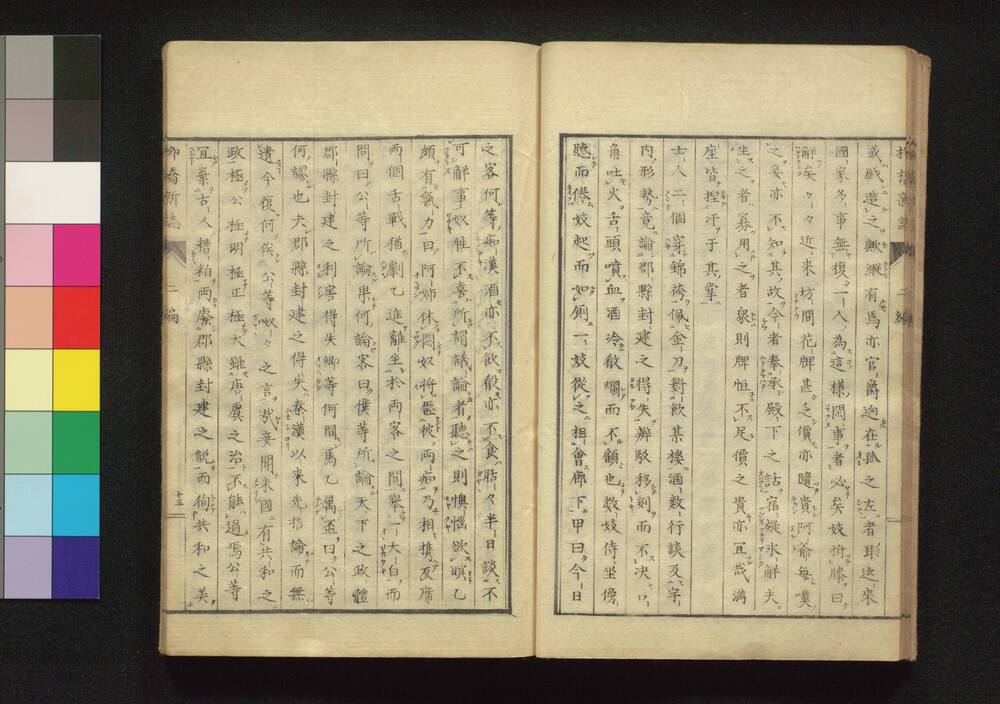 盛戯造之無繳有焉亦官爵迥在孤之左者耶近來
國家多事無復一人為這樣閑事者必矣妓拊膝曰
解矣々々近來坊間花牌甚之價亦隨貴阿爺毎嘆
之妾亦不知其故今者奉承殿下之詁宿凝氷解夫
生之者寡用之者衆則牌恒不足價之貴亦宜哉滿
座皆捏汗于其掌
士人二個穿錦袴佩金刀對飲某樓酒数行談及宇
内形勢竟論郡縣封建之得失辨駁移刻而不决口
角吐火舌頭噴血酒冷殽爛而不顧也数妓侍坐傍
聽而倦妓起而如厠一妓從之相會廊下甲曰今日
之客何等痴漢酒亦不飲殽亦不食聒々半日談不
可解事奴性不喜所謂議論者聽之則懊惱欲嘔乙
頗有氣力曰阿姉休悶奴將慪彼両痴乃相携反席
両個舌戰猶劇乙進離坐於両客之間擧一大白而
問曰公等所論果何論客曰僕等所論天下之政體
郡縣封建之利害得失卿等何問焉乙属盃曰公等
何謬也夫郡縣封建之得失秦漢以來先哲論而無
遺今復何俟公等呶々之言哉妾聞米國有共和之
政極公極明極正極大雖唐虞之治不能過焉公等
宜棄古人糟粕両廢郡縣封建之説而徇共和之美
柳橋新誌 二編 十三